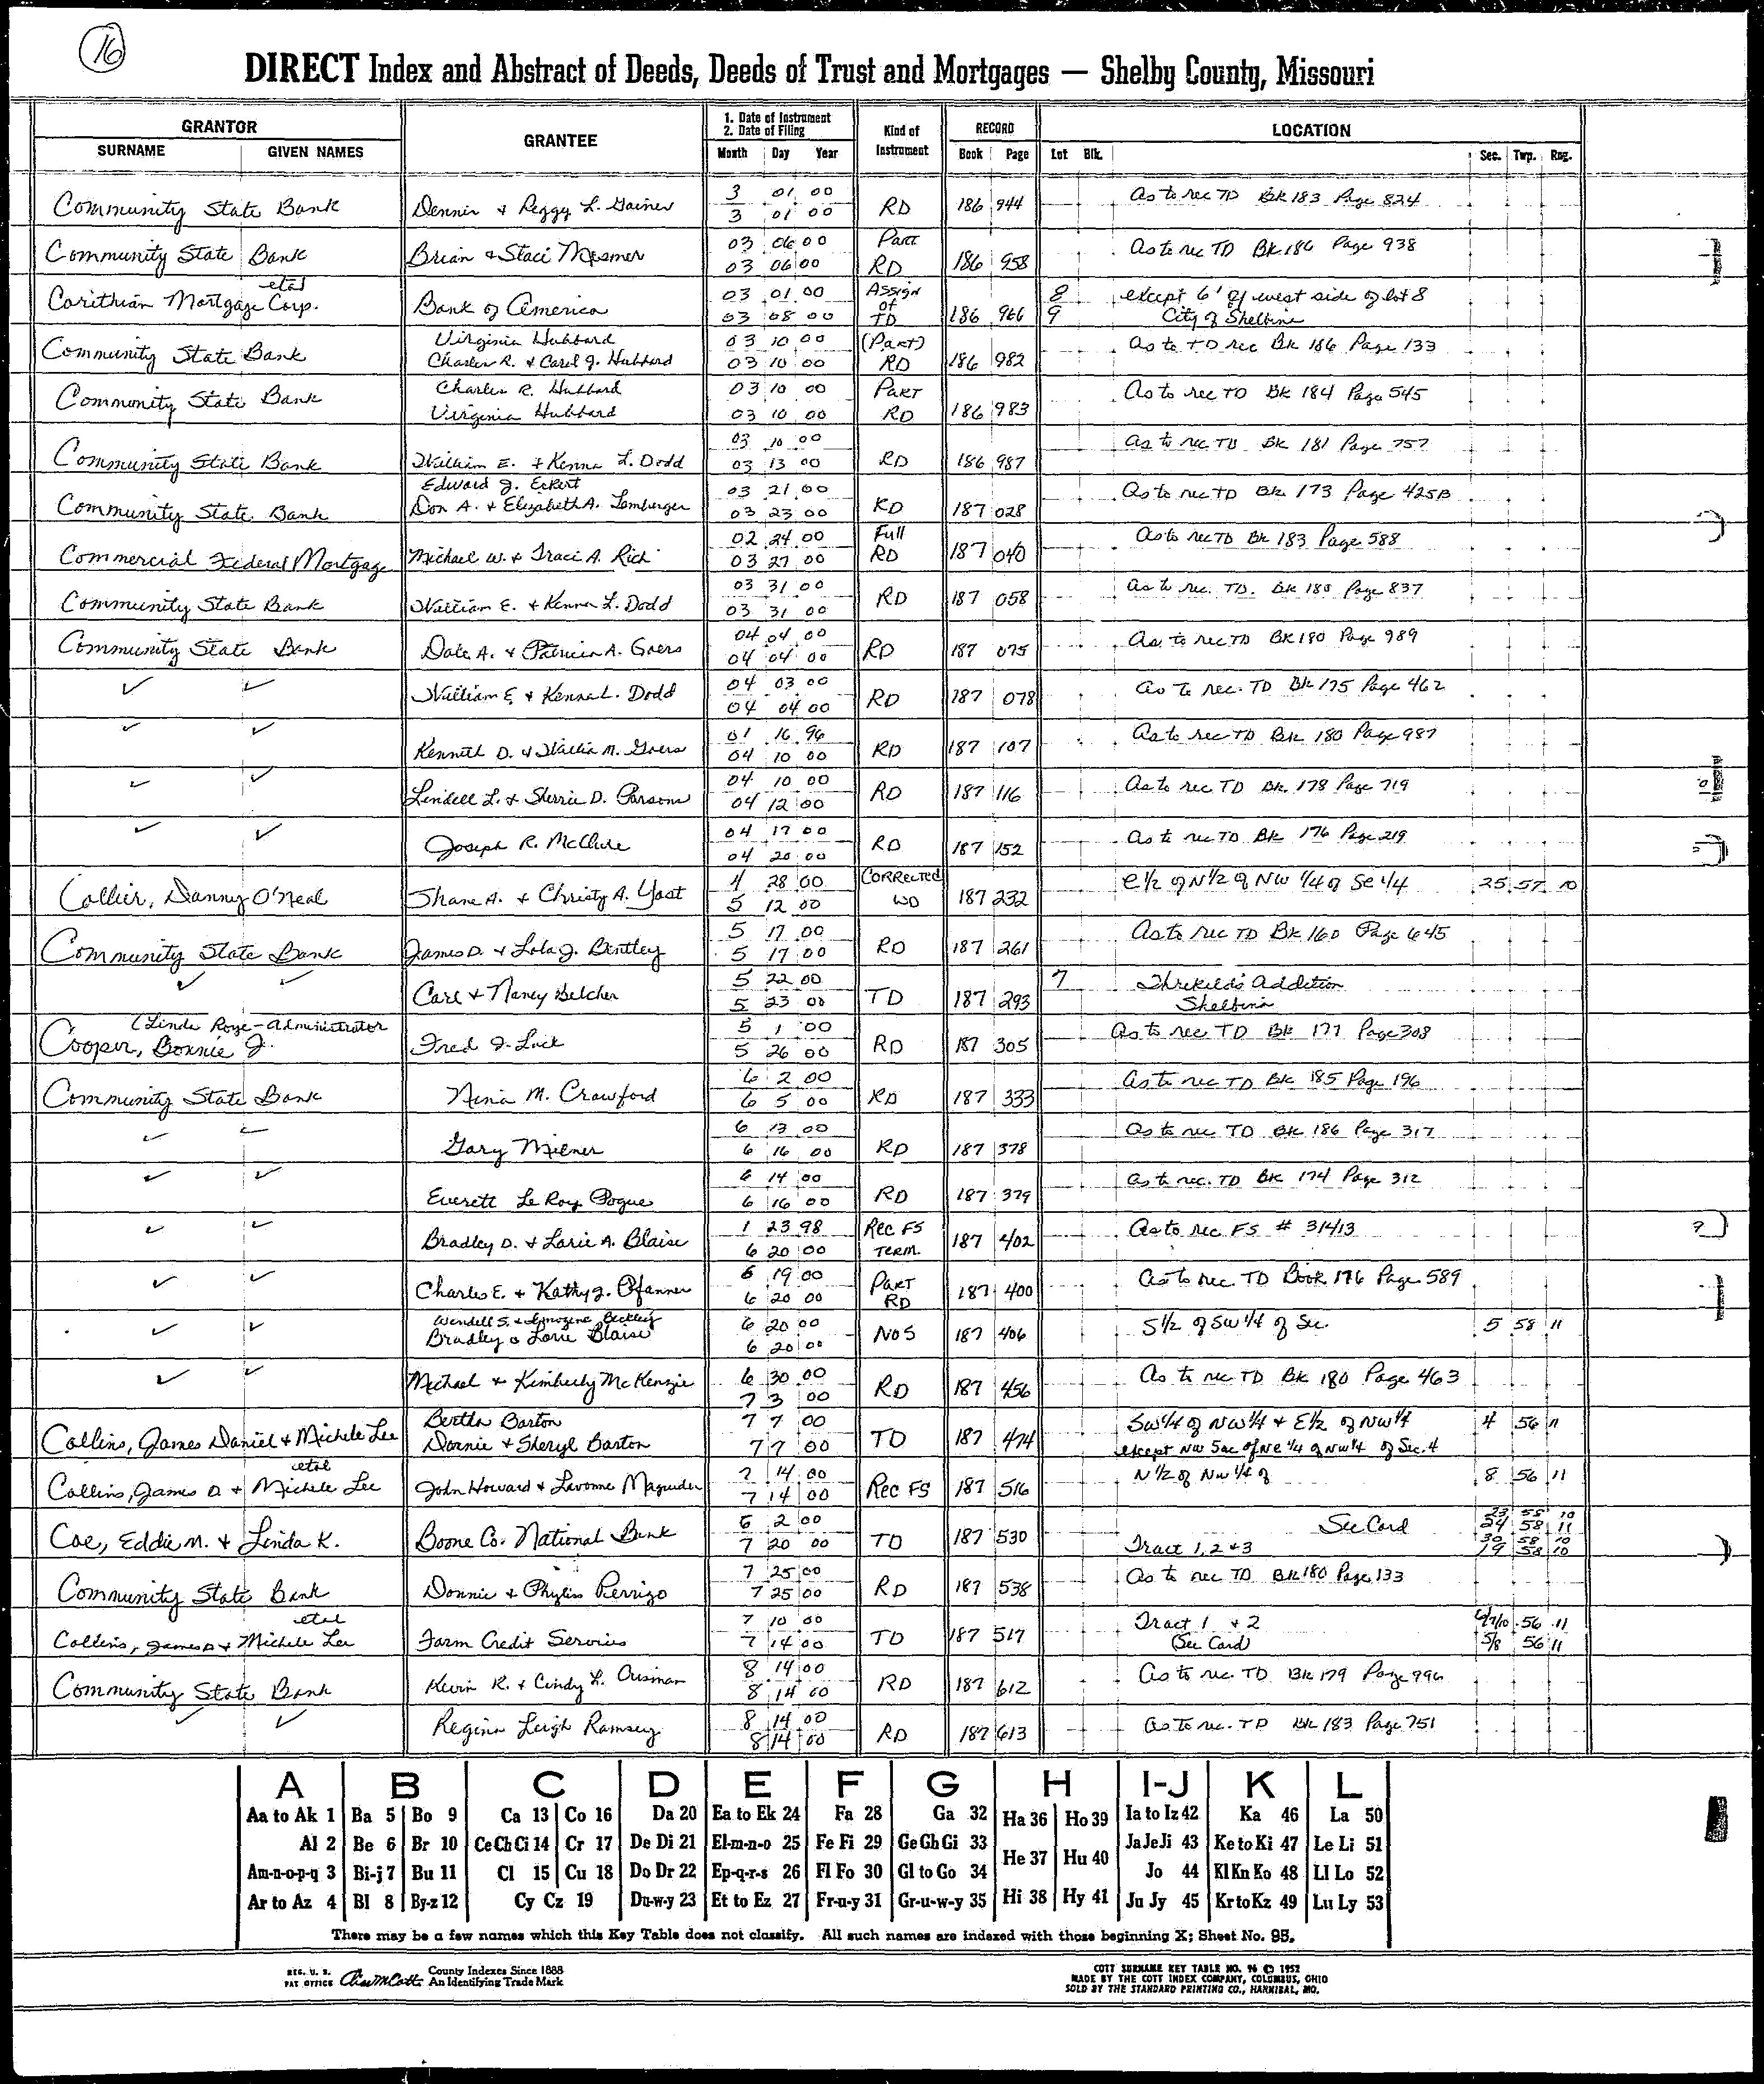 16
DIRECT Index and Abstract of Deeds, Deeds of Trust and Mortgages — Shelby County, Missouri
GRANTOR
SURNAME GIVEN NAMES
GRANTEE
1. Date of Instrument
2. Date of Filing
Month Day Year
Kind of Instrument
RECORD
Book Page
LOCATION
Lot Blk. Sec. Twp. Rng.
Community State Bank Dennis & Peggy L. Gaines 3 01 00 3 01 00 RD 186 944 As to rec TD Bk 183 Page 824
Community State Bank Brian & Staci Mesmer 03 06 00 03 06 00 Part RD 186 958 As to rec TD Bk 186 Page 938
Corithian Mortgage Corp. etal Bank of America 03 01 00 03 08 00 Assign of TD 186 966 8 9 except 6' of west side of lot 8 City of Shelbina
Community State Bank Virginia Hubbard Charles R. & Carol J. Hubbard 03 10 00 03 10 00 (Part) RD 186 982 As to TD rec Bk 186 Page 133
Community State Bank Charles R. Hubbard Virginia Hubbard 03 10 00 03 10 00 Part RD 186 983 As to rec TD Bk 184 Page 545
Community State Bank William E. & Kenna L. Dodd 03 10 00 03 13 00 RD 186 987 As to rec TD Bk 181 Page 757
Community State Bank Edward J. Eckert Don A. & Elizabeth A. Lemberger 03 21 00 03 23 00 RD 187 028 As to rec TD Bk 173 Page 425B
Commercial Federal Mortgage Michael W. & Traci A. Rich 02 24 00 03 27 00 Full RD 187 040 As to rec TD Bk 183 Page 588
Community State Bank William E. & Kenna L. Dodd 03 31 00 03 31 00 RD 187 058 As to rec. TD. Bk Page 837
Community State Bank Dale A. & Patricia A. Goers 04 04 00 04 04 00 RD 187 075 As to rec TD Bk 180 Page 989
✓ ✓ William E & Kenna L. Dodd 04 03 00 04 04 00 RD 187 078 As to rec. TD Bk 175 Page 462
✓ ✓ Kenneth D. & M. Goers 01 16 96 04 10 00 RD 187 107 As to rec TD Bk 180 Page 987
✓ ✓ Lindell L. & Sherrie D. Parsons 04 10 00 04 12 00 RD 187 116 As to rec TD Bk 178 Page 719
✓ ✓ Joseph R. McClure 04 17 00 04 20 00 RD 187 152 As to rec TD Bk 176 Page 219
Collier, Danny O'Neal Shane A. & Christy A. Yost 4 28 00 5 12 00 CORRECTED WD 187 232 E 1/2 of N 1/2 of NW 1/4 of SE 1/4 25 57 10
Community State Bank James D. & Lola J. Bentley 5 17 00 5 17 00 RD 187 261 As to rec TD Bk 160 Page 645
✓ ✓ Carl & Nancy Belcher 5 22 00 5 23 00 TD 187 293 7 Threlkeld's Addition Shelbina
Cooper, Bonnie J. (Linda Roye - Administrator Fred J. Luck 5 1 00 5 26 00 RD 187 305 As to rec TD Bk 177 Page 308
Community State Bank Nina M. Crawford 6 2 00 6 5 00 RD 187 333 As to rec TD Bk 185 Page 196
✓ ✓ Gary Milner 6 13 00 6 16 00 RD 187 378 As to rec TD Bk 186 Page 317
✓ ✓ Everett Le Roy Pogue 6 14 00 6 16 00 RD 187 379 As to rec. TD Bk 174 Page 312
✓ ✓ Bradley D. & Lorie A. Blaise 1 23 98 6 20 00 Rec FS TERM. 187 402 As to rec FS # 31413
✓ ✓ Charles E. & Kathy J. Pfanner 6 19 00 6 20 00 PART RD 187 400 As to rec. TD Book 176 Page 589
✓ ✓ Wendell S. & Imogene Beckley Bradley & Lorie Blaise 6 20 00 6 20 00 NOS 187 406 S 1/2 of SW 1/4 of Sec 5 58 11
✓ ✓ Michael & Kimberly McKenzie 6 30 00 7 3 00 RD 187 456 As to rec TD Bk 180 Page 463
Collins, James Daniel & Michele Lee Bertha Barton Donnie & Sheryl Barton 7 7 00 7 7 00 TD 187 474 SW 1/4 of NW 1/4 & E 1/2 of NW 1/4 except NW 5ac of NE 1/4 of NW 1/4 of Sec. 4 4 56 11
Collins, James D. & Michele Lee etal John Howard & Lavonne Magruder 7 14 00 7 14 00 Rec FS 187 516 N 1/2 of NW 1/4 of 8 56 11
Coe, Eddie M. & Linda K. Boone Co. National Bank 6 2 00 7 20 00 TD 187 530 See Card Tract 1, 2 & 3 23 58 10 24 58 11 30 58 10 19 58 10
Community State Bank Donnie & Phyliss Perrigo 7 25 00 7 25 00 RD 187 538 As to rec TD Bk 180 Page 133
Collins, James D & Michele Lee etal Farm Credit Services 7 10 00 7 14 00 TD 187 517 Tract 1 & 2 (See Card) 56 11 5/8 56 11
Community State Bank Kevin R. & Cindy L. Ousman 8 14 00 8 14 00 RD 187 612 As to rec. TD Bk 179 Page 996
✓ ✓ Regina Leigh Ramsey 8 14 00 8 14 00 RD 187 613 As to rec. TD Bk 183 Page 751
A B C D E F G H I-J K L
Aa to Ak 1 Ba 5 Bo 9 Ca 13 Co 16 Da 20 Ea to Ek 24 Fa 28 Ga 32 Ha 36 Ho 39 Ia to Iz 42 Ka 46 La 50
Al 2 Be 6 Br 10 Ce Ch Ci 14 Cr 17 De Di 21 El-m-n-o 25 Fe Fi 29 Ge Gh Gi 33 He 37 Hu 40 Ja Je Ji 43 Ke to Ki 47 Le Li 51
Am-n-o-p-q 3 Bi-j 7 Bu 11 Cl 15 Cu 18 Do Dr 22 Ep-q-r-s 26 Fl Fo 30 Gl to Go 34 Jo 44 Kl Kn Ko 48 Ll Lo 52
Ar to Az 4 Bl 8 By-z 12 Cy Cz 19 Du-w-y 23 Et to Ez 27 Fr-u-y 31 Gr-u-w-y 35 Hi 38 Hy 41 Ju Jy 45 Kr to Kz 49 Lu Ly 53
There may be a few names which this Key Table does not classify. All such names are indexed with those beginning X; Sheet No. 95.
REG. U. S. PAT OFFICE County Indexes Since 1888 An Identifying Trade Mark
COTT SURNAME KEY TABLE NO. 96 © 1952
MADE BY THE COTT INDEX COMPANY, COLUMBUS, OHIO
SOLD BY THE STANDARD PRINTING CO., HANNIBAL, MO.